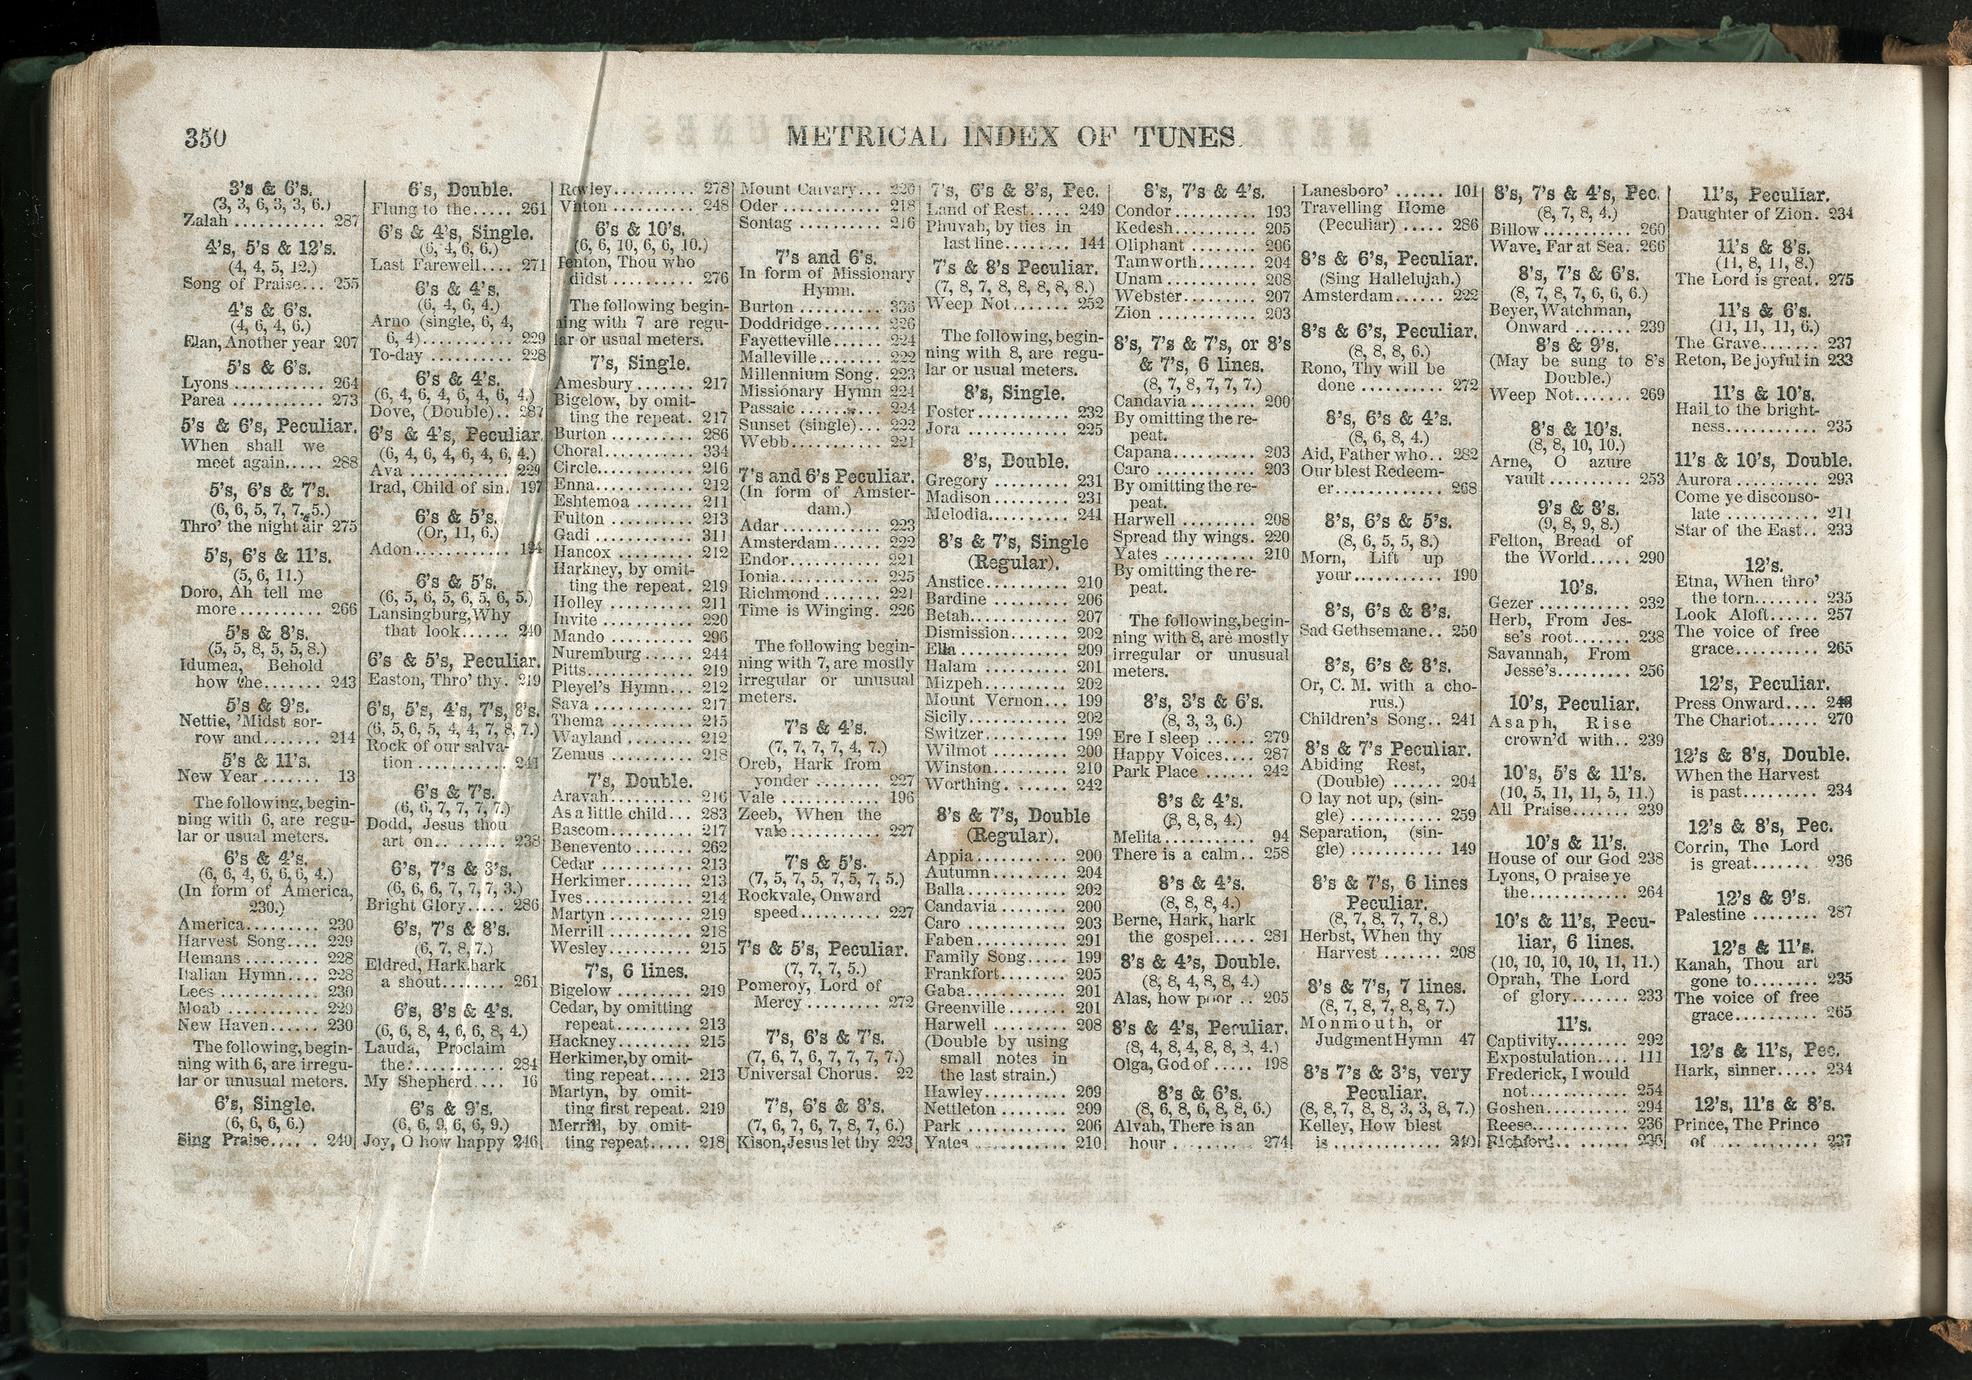 350
METRICAL INDEX OF TUNES.
3's & 6's.
(3, 3, 6, 3, 3, 6.)
Zalah ........... 287
4's, 5's & 12's.
(4, 4, 5, 12.)
Song of Praise... 255
4's & 6's.
(4, 6, 4, 6.)
Elan, Another year 207
5's & 6's.
Lyons ........... 264
Parea ........... 273
5's & 6's, Peculiar.
When shall we
meet again..... 288
5's, 6's & 7's.
(6, 6, 5, 7, 7, 5.)
Thro' the night air 275
5's, 6's & 11's.
(5, 6, 11.)
Doro, Ah tell me
more .......... 266
5's & 8's.
(5, 5, 8, 5, 5, 8.)
Idumea, Behold
how the....... 243
5's & 9's.
Nettie, 'Midst sor-
row and....... 214
5's & 11's.
New Year ....... 13
The following, begin-
ning with 6, are regu-
lar or usual meters.
6's & 4's.
(6, 6, 4, 6, 6, 6, 4.)
(In form of America,
230.)
America.......... 230
Harvest Song.... 229
Hemans ......... 228
Italian Hymn.... 228
Lees ............ 230
Moab ........... 229
New Haven...... 230
The following, begin-
ning with 6, are irregu-
lar or unusual meters.
6's, Single.
(6, 6, 6, 6.)
Sing Praise..... 240
6's, Double.
Flung to the..... 261
6's & 4's, Single.
(6, 4, 6, 6.)
Last Farewell.... 271
6's & 4's.
(6, 4, 6, 4.)
Arno (single, 6, 4,
6, 4)........... 229
To-day .......... 228
6's & 4's.
(6, 4, 6, 4, 6, 4, 6, 4.)
Dove, (Double).. 287
6's & 4's, Peculiar.
(6, 4, 6, 4, 6, 4, 6, 4.)
Ava ............. 229
Irad, Child of sin. 197
6's & 5's.
(Or, 11, 6.)
Adon............ 194
6's & 5's.
(6, 5, 6, 5, 6, 5, 6, 5.)
Lansingburg, Why
that look...... 240
6's & 5's, Peculiar.
Easton, Thro' thy. 219
6's, 5's, 4's, 7's, 8's.
(6, 5, 6, 5, 4, 4, 7, 8, 7.)
Rock of our salva-
tion ............ 241
6's & 7's.
(6, 6, 7, 7, 7, 7.)
Dodd, Jesus thou
art on.. ...... 238
6's, 7's & 3's.
(6, 6, 6, 7, 7, 7, 3.)
Bright Glory..... 286
6's, 7's & 8's.
(6, 7, 8, 7.)
Eldred, Hark, hark
a shout........ 261
6's, 8's & 4's.
(6, 6, 8, 4, 6, 6, 8, 4.)
Lauda, Proclaim
the............ 284
My Shepherd.... 16
6's & 9's.
(6, 6, 9, 6, 6, 9.)
Joy, O how happy 246
Rowley.......... 278
Vinton .......... 248
6's & 10's.
(6, 6, 10, 6, 6, 10.)
Fenton, Thou who
didst .......... 276
The following begin-
ning with 7 are regu-
lar or usual meters.
7's, Single.
Amesbury ....... 217
Bigelow, by omit-
ting the repeat. 217
Burton .......... 286
Choral........... 334
Circle............ 216
Enna............. 212
Eshtemoa ....... 211
Fulton .......... 213
Gadi ............ 311
Hancox ......... 212
Harkney, by omit-
ting the repeat. 219
Holley .......... 211
Invite ........... 220
Mando .......... 296
Nuremburg...... 244
Pitts............. 219
Pleyel's Hymn... 212
Sava ............ 217
Thema .......... 215
Wayland ........ 212
Zemus .......... 218
7's, Double.
Aravah.......... 216
As a little child... 283
Bascom.......... 217
Benevento ....... 262
Cedar ........... 213
Herkimer........ 213
Ives............. 214
Martyn ......... 219
Merrill .......... 218
Wesley.......... 215
7's, 6 lines.
Bigelow ......... 219
Cedar, by omitting
repeat.......... 213
Hackney......... 215
Herkimer, by omit-
ting repeat..... 213
Martyn, by omit-
ting first repeat. 219
Merrill, by omit-
ting repeat..... 218
Mount Calvary... 220
Oder ............ 218
Sontag .......... 216
7's and 6's.
In form of Missionary
Hymn.
Burton .......... 336
Doddridge....... 226
Fayetteville...... 224
Malleville........ 222
Millennium Song. 223
Missionary Hymn 224
Passaic .......... 224
Sunset (single)... 222
Webb............ 221
7's and 6's Peculiar.
(In form of Amster-
dam.)
Adar ............ 223
Amsterdam...... 222
Endor........... 221
Ionia............ 225
Richmond ....... 221
Time is Winging. 226
The following begin-
ning with 7, are mostly
irregular or unusual
meters.
7's & 4's.
(7, 7, 7, 7, 4, 7.)
Oreb, Hark from
yonder ........ 227
Vale ............ 196
Zeeb, When the
vale ........... 227
7's & 5's.
(7, 5, 7, 5, 7, 5, 7, 5.)
Rockvale, Onward
speed.......... 227
7's & 5's, Peculiar.
(7, 7, 7, 5.)
Pomeroy, Lord of
Mercy ......... 272
7's, 6's & 7's.
(7, 6, 7, 6, 7, 7, 7, 7.)
Universal Chorus. 22
7's, 6's & 8's.
(7, 6, 7, 6, 7, 8, 7, 6.)
Kison, Jesus let thy 223
7's, 6's & 8's, Pec.
Land of Rest..... 249
Phuvah, by ties in
last line........ 144
7's & 8's Peculiar.
(7, 8, 7, 8, 8, 8, 8, 8.)
Weep Not........ 252
The following, begin-
ning with 8, are regu-
lar or usual meters.
8's, Single.
Foster........... 232
Jora ............. 225
8's, Double.
Gregory ......... 231
Madison......... 231
Melodia.......... 241
8's & 7's, Single
(Regular).
Anstice.......... 210
Bardine ......... 206
Betah........... 207
Dismission....... 202
Ella ............. 209
Halam .......... 201
Mizpeh.......... 202
Mount Vernon... 199
Sicily............ 202
Switzer.......... 199
Wilmot ......... 200
Winston......... 210
Worthing. ...... 242
8's & 7's, Double
(Regular).
Appia ........... 200
Autumn......... 204
Balla............ 202
Candavia ....... 200
Caro ............ 203
Faben........... 291
Family Song..... 199
Frankfort........ 205
Gaba............ 201
Greenville....... 201
Harwell ......... 208
(Double by using
small notes in
the last strain.)
Hawley.......... 209
Nettleton ....... 209
Park ............ 206
Yates ........... 210
8's, 7's & 4's.
Condor.......... 193
Kedesh.......... 205
Oliphant ........ 206
Tamworth....... 204
Unam ........... 208
Webster......... 207
Zion ............ 203
8's, 7's & 7's, or 8's
& 7's, 6 lines.
(8, 7, 8, 7, 7, 7.)
Candavia ........ 200
By omitting the re-
peat.
Capana.......... 203
Caro ............ 203
By omitting the re-
peat.
Harwell ......... 208
Spread thy wings. 220
Yates ........... 210
By omitting the re-
peat.
The following, begin-
ning with 8, are mostly
irregular or unusual
meters.
8's, 3's & 6's.
(8, 3, 3, 6.)
Ere I sleep ...... 279
Happy Voices.... 287
Park Place ...... 242
8's & 4's.
(8, 8, 8, 4.)
Melita........... 94
There is a calm.. 258
8's & 4's.
(8, 8, 8, 4.)
Berne, Hark, hark
the gospel..... 281
8's & 4's, Double.
(8, 8, 4, 8, 8, 4.)
Alas, how poor .. 205
8's & 4's, Peculiar.
(8, 4, 8, 4, 8, 8, 8, 4.)
Olga, God of ..... 198
8's & 6's.
(8, 6, 8, 6, 8, 8, 6.)
Alvah, There is an
hour . ........ 274
Lanesboro' ...... 101
Travelling Home
(Peculiar) ..... 286
8's & 6's, Peculiar.
(Sing Hallelujah.)
Amsterdam...... 222
8's & 6's, Peculiar.
(8, 8, 8, 6.)
Rono, Thy will be
done .......... 272
8's, 6's & 4's.
(8, 6, 8, 4.)
Aid, Father who.. 282
Our blest Redeem-
er............. 268
8's, 6's & 5's.
(8, 6, 5, 5, 8.)
Morn, Lift up
your........... 190
8's, 6's & 8's.
Sad Gethsemane.. 250
8's, 6's & 8's.
Or, C. M. with a cho-
rus.)
Children's Song.. 241
8's & 7's Peculiar.
Abiding Rest,
(Double) ...... 204
O lay not up, (sin-
gle) ........... 259
Separation, (sin-
gle) ........... 149
8's & 7's, 6 lines
Peculiar.
(8, 7, 8, 7, 7, 8.)
Herbst, When thy
Harvest ....... 208
8's & 7's, 7 lines.
(8, 7, 8, 7, 8, 8, 7.)
Monmouth, or
Judgment Hymn 47
8's 7's & 3's, very
Peculiar.
(8, 8, 7, 8, 8, 3, 3, 8, 7.)
Kelley, How blest
is ............. 240
8's, 7's & 4's, Pec.
(8, 7, 8, 4.)
Billow........... 260
Wave, Far at Sea. 266
8's, 7's & 6's.
(8, 7, 8, 7, 6, 6, 6.)
Beyer, Watchman,
Onward ....... 239
8's & 9's.
(May be sung to 8's
Double.)
Weep Not....... 269
8's & 10's.
(8, 8, 10, 10.)
Arne, O azure
vault .......... 253
9's & 8's.
(9, 8, 9, 8.)
Felton, Bread of
the World..... 290
10's.
Gezer ........... 232
Herb, From Jes-
se's root....... 238
Savannah, From
Jesse's......... 256
10's, Peculiar.
Asaph, Rise
crown'd with.. 239
10's, 5's & 11's.
(10, 5, 11, 11, 5, 11.)
All Praise....... 239
10's & 11's.
House of our God 238
Lyons, O praise ye
the............ 264
10's & 11's, Pecu-
liar, 6 lines.
(10, 10, 10, 10, 11, 11.)
Oprah, The Lord
of glory....... 233
11's.
Captivity........ 292
Expostulation.... 111
Frederick, I would
not............ 254
Goshen.......... 294
Reese............ 236
Richford......... 236
11's, Peculiar.
Daughter of Zion. 234
11's & 8's.
(11, 8, 11, 8.)
The Lord is great. 275
11's & 6's.
(11, 11, 11, 6.)
The Grave....... 237
Reton, Be joyful in 233
11's & 10's.
Hail to the bright-
ness........... 235
11's & 10's, Double.
Aurora .......... 293
Come ye disconso-
late ........... 211
Star of the East.. 233
12's.
Etna, When thro'
the torn........ 235
Look Aloft...... 257
The voice of free
grace.......... 265
12's, Peculiar.
Press Onward....
The Chariot...... 270
12's & 8's, Double.
When the Harvest
is past......... 234
12's & 8's, Pec.
Corrin, The Lord
is great........ 236
12's & 9's.
Palestine ........ 287
12's & 11's.
Kanah, Thou art
gone to........ 235
The voice of free
grace.......... 265
12's & 11's, Pec.
Hark, sinner..... 234
12's, 11's & 8's.
Prince, The Prince
of ............. 237